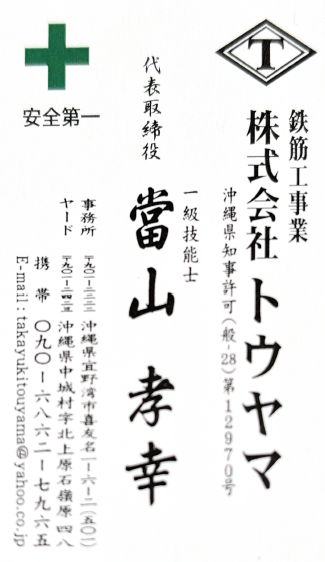 T
鉄筋工事業
株式会社トウヤマ
沖縄県知事許可(般-28)第12970号
一級技能士
代表取締役
當山 孝幸
安全第一
事務所 〒九〇一-二二二三 沖縄県宜野湾市喜友名一-六-二(五〇一)
ヤード 〒九〇一-二四二三 沖縄県中城村字北上原石嶺原四八
携帯 〇九〇-六八六二-七九六五
E-mail:takayukitouyama@yahoo.co.jp